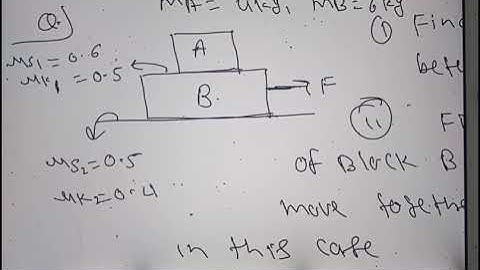 Q.
MA = 4kg, MB = 6kg
μs₁ = 0.6
μk₁ = 0.5
A
B.
F
μs₂ = 0.5
μk₂ = 0.4
(i) Find
(ii)
of Block B
move together
in this case